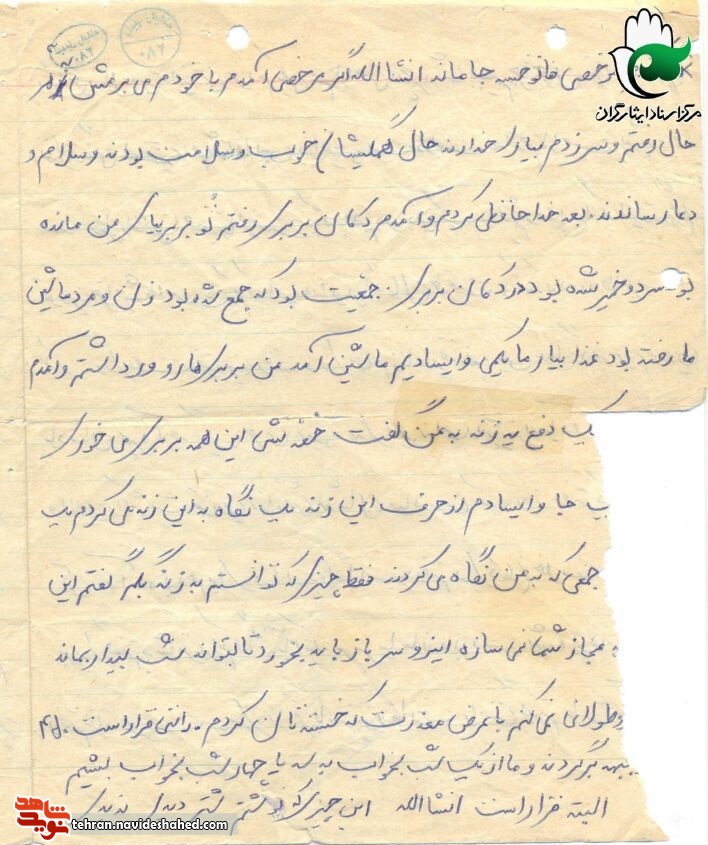 مرکز اسناد ایثارگران
مرخصی فانوحسه جا ماند انشاالله اگر مرخصی آمدم با خودم می برمش
حال رفتم و سر زدم بسیار خدا را حال گملیشان خوب و سلامت بودن و سلام و
دعا رساندند. بعد خدا حافظی کردم و آمدم دکان بربری رفتم تو بربریای من مانده
بود سرد و خمیر شده بود در دکان بربری جمعیت بود که جمع شده بود زن و مرد ماشین
ما رفته بود غذا بیاره ما یکمی وایسادیم ماشین آمد من بربری ها رو ور داشتم و آمدم
یک دفع یه زنه به من گفت خفه نشی این همه بربری می خوری
جا وایسادم از حرف این زن یک نگاه به این زنه می کردم یک
جمعی که به من نگاه می کردند فقط چیزی که توانستم به زنه بگم گفتم این
مجاز شما نمی سازه اینرو سرباز باید بخوره تا بتواند شب بیدار بماند
طولانی نمی کنم با عرض معذرت که خسته تان کردم. راستی قرار است
برگردند و ما از یک شب بخواب به سه یا چهار شب بخواب بشیم
البته قرار است انشاالله این چیزی
نوید شاهد
tehran.navideshahed.com